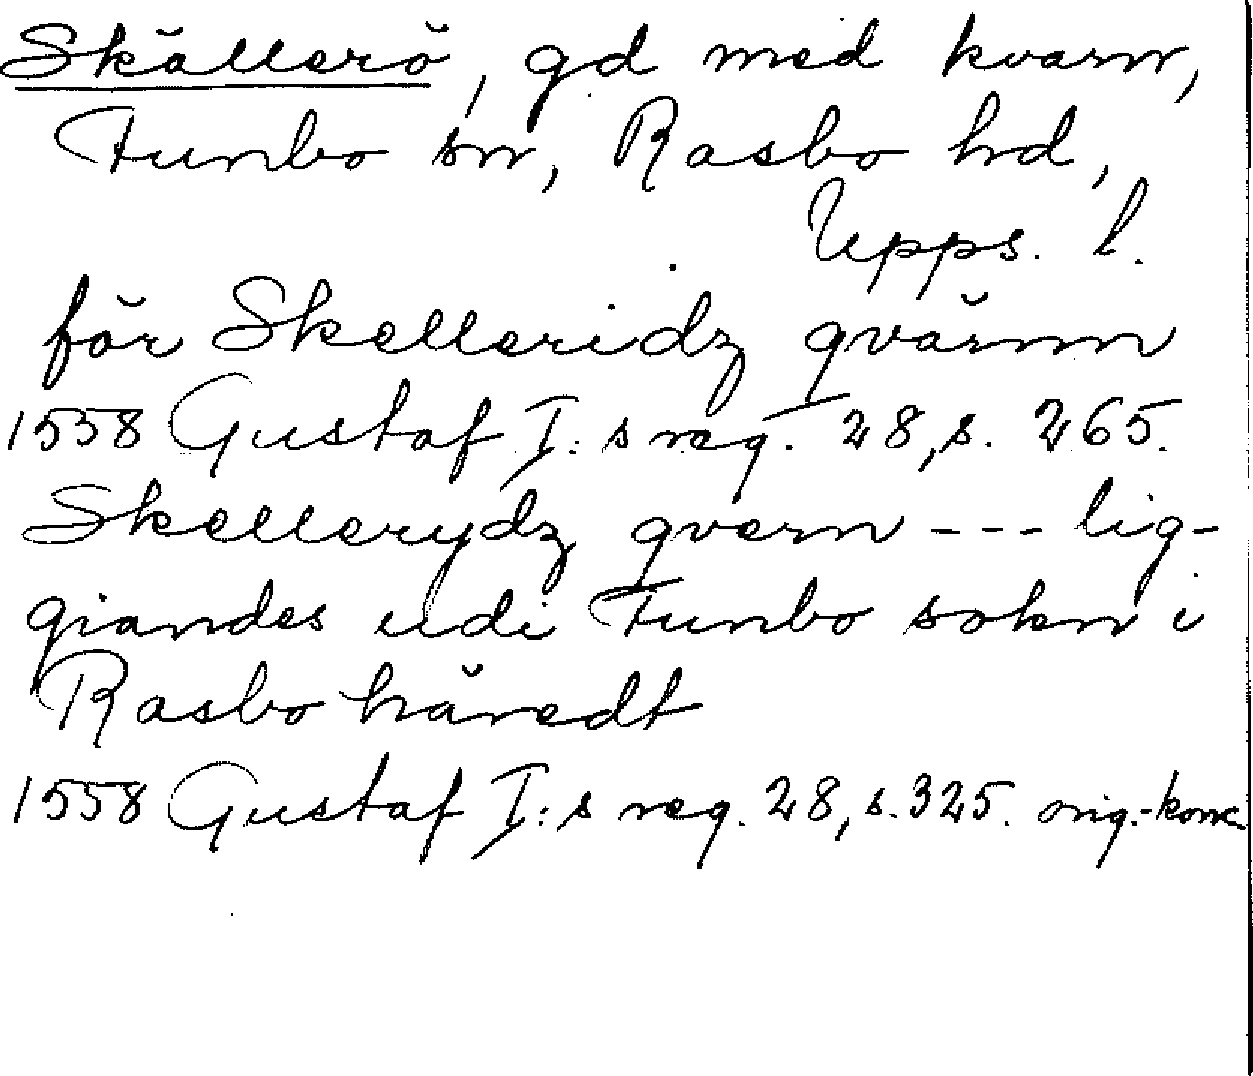 Skällerö, gd med kvarn,
Funbo sn, Rasbo hd,
Upps. l.
för Skelleridz qvärnn
1558 Gustaf I:s reg. 28, s. 265.
Skellerydz qvern --- lig-
giandes udi Funbo sokn i
Rasbo häredt
1558 Gustaf I:s reg. 28, s. 325. orig.-konc.